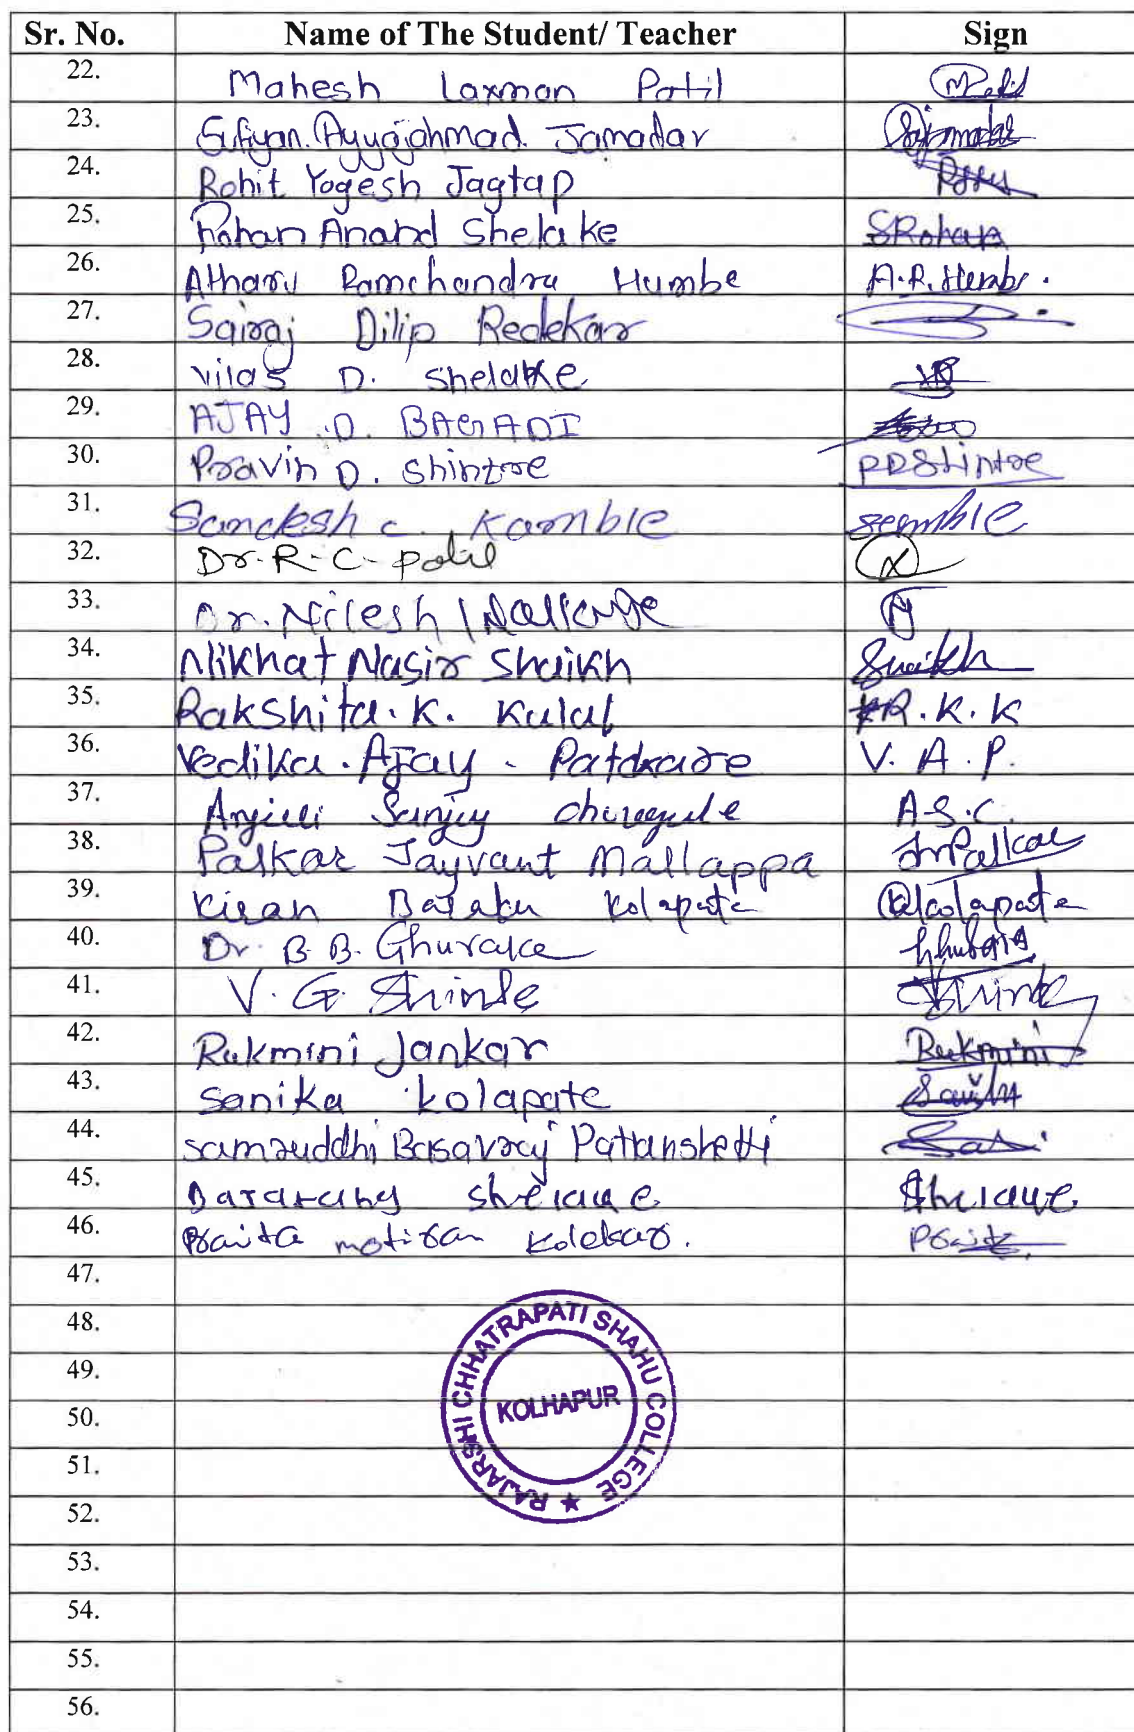 Sr. No. Name of The Student/ Teacher Sign
22. Mahesh Laxman Patil
23. Sufiyan. Ayyajahmad. Jamadar
24. Rohit Yogesh Jagtap
25. Rohan Anand Shelake SRohan
26. Atharv Ramchandra Humbe A.R.Humbe.
27. Sairaj Dilip Redekar
28. Vilas D. Shelake
29. AJAY .D. BAGADI
30. Pravin D. Shintre PDShintre
31. Sandesh C. Kamble
32. Dr. R. C. Patil
33. Dr. Nilesh
34. Nikhat Nasir Shaikh Shaikh
35. Rakshita. K. Kulal R.K.K
36. Vedika. Ajay. V. A. P.
37. Sanjay A.S.C.
38. Palkar Jayvant Mallappa JMPalkar
39. Kiran Kolapate Kolapate
40. Dr. B. B. Ghurake
41. V. G. Shinde Shinde
42. Rukmini Jankar Rukmini
43. Sanika Kolapate
44. Samruddhi Basavraj Pattanshetti
45. Bajarang Shelake Shelake
46. motiram Kolekar.
47.
48.
49.
50.
51.
52.
53.
54.
55.
56.
RAJARSHI CHHATRAPATI SHAHU COLLEGE
KOLHAPUR